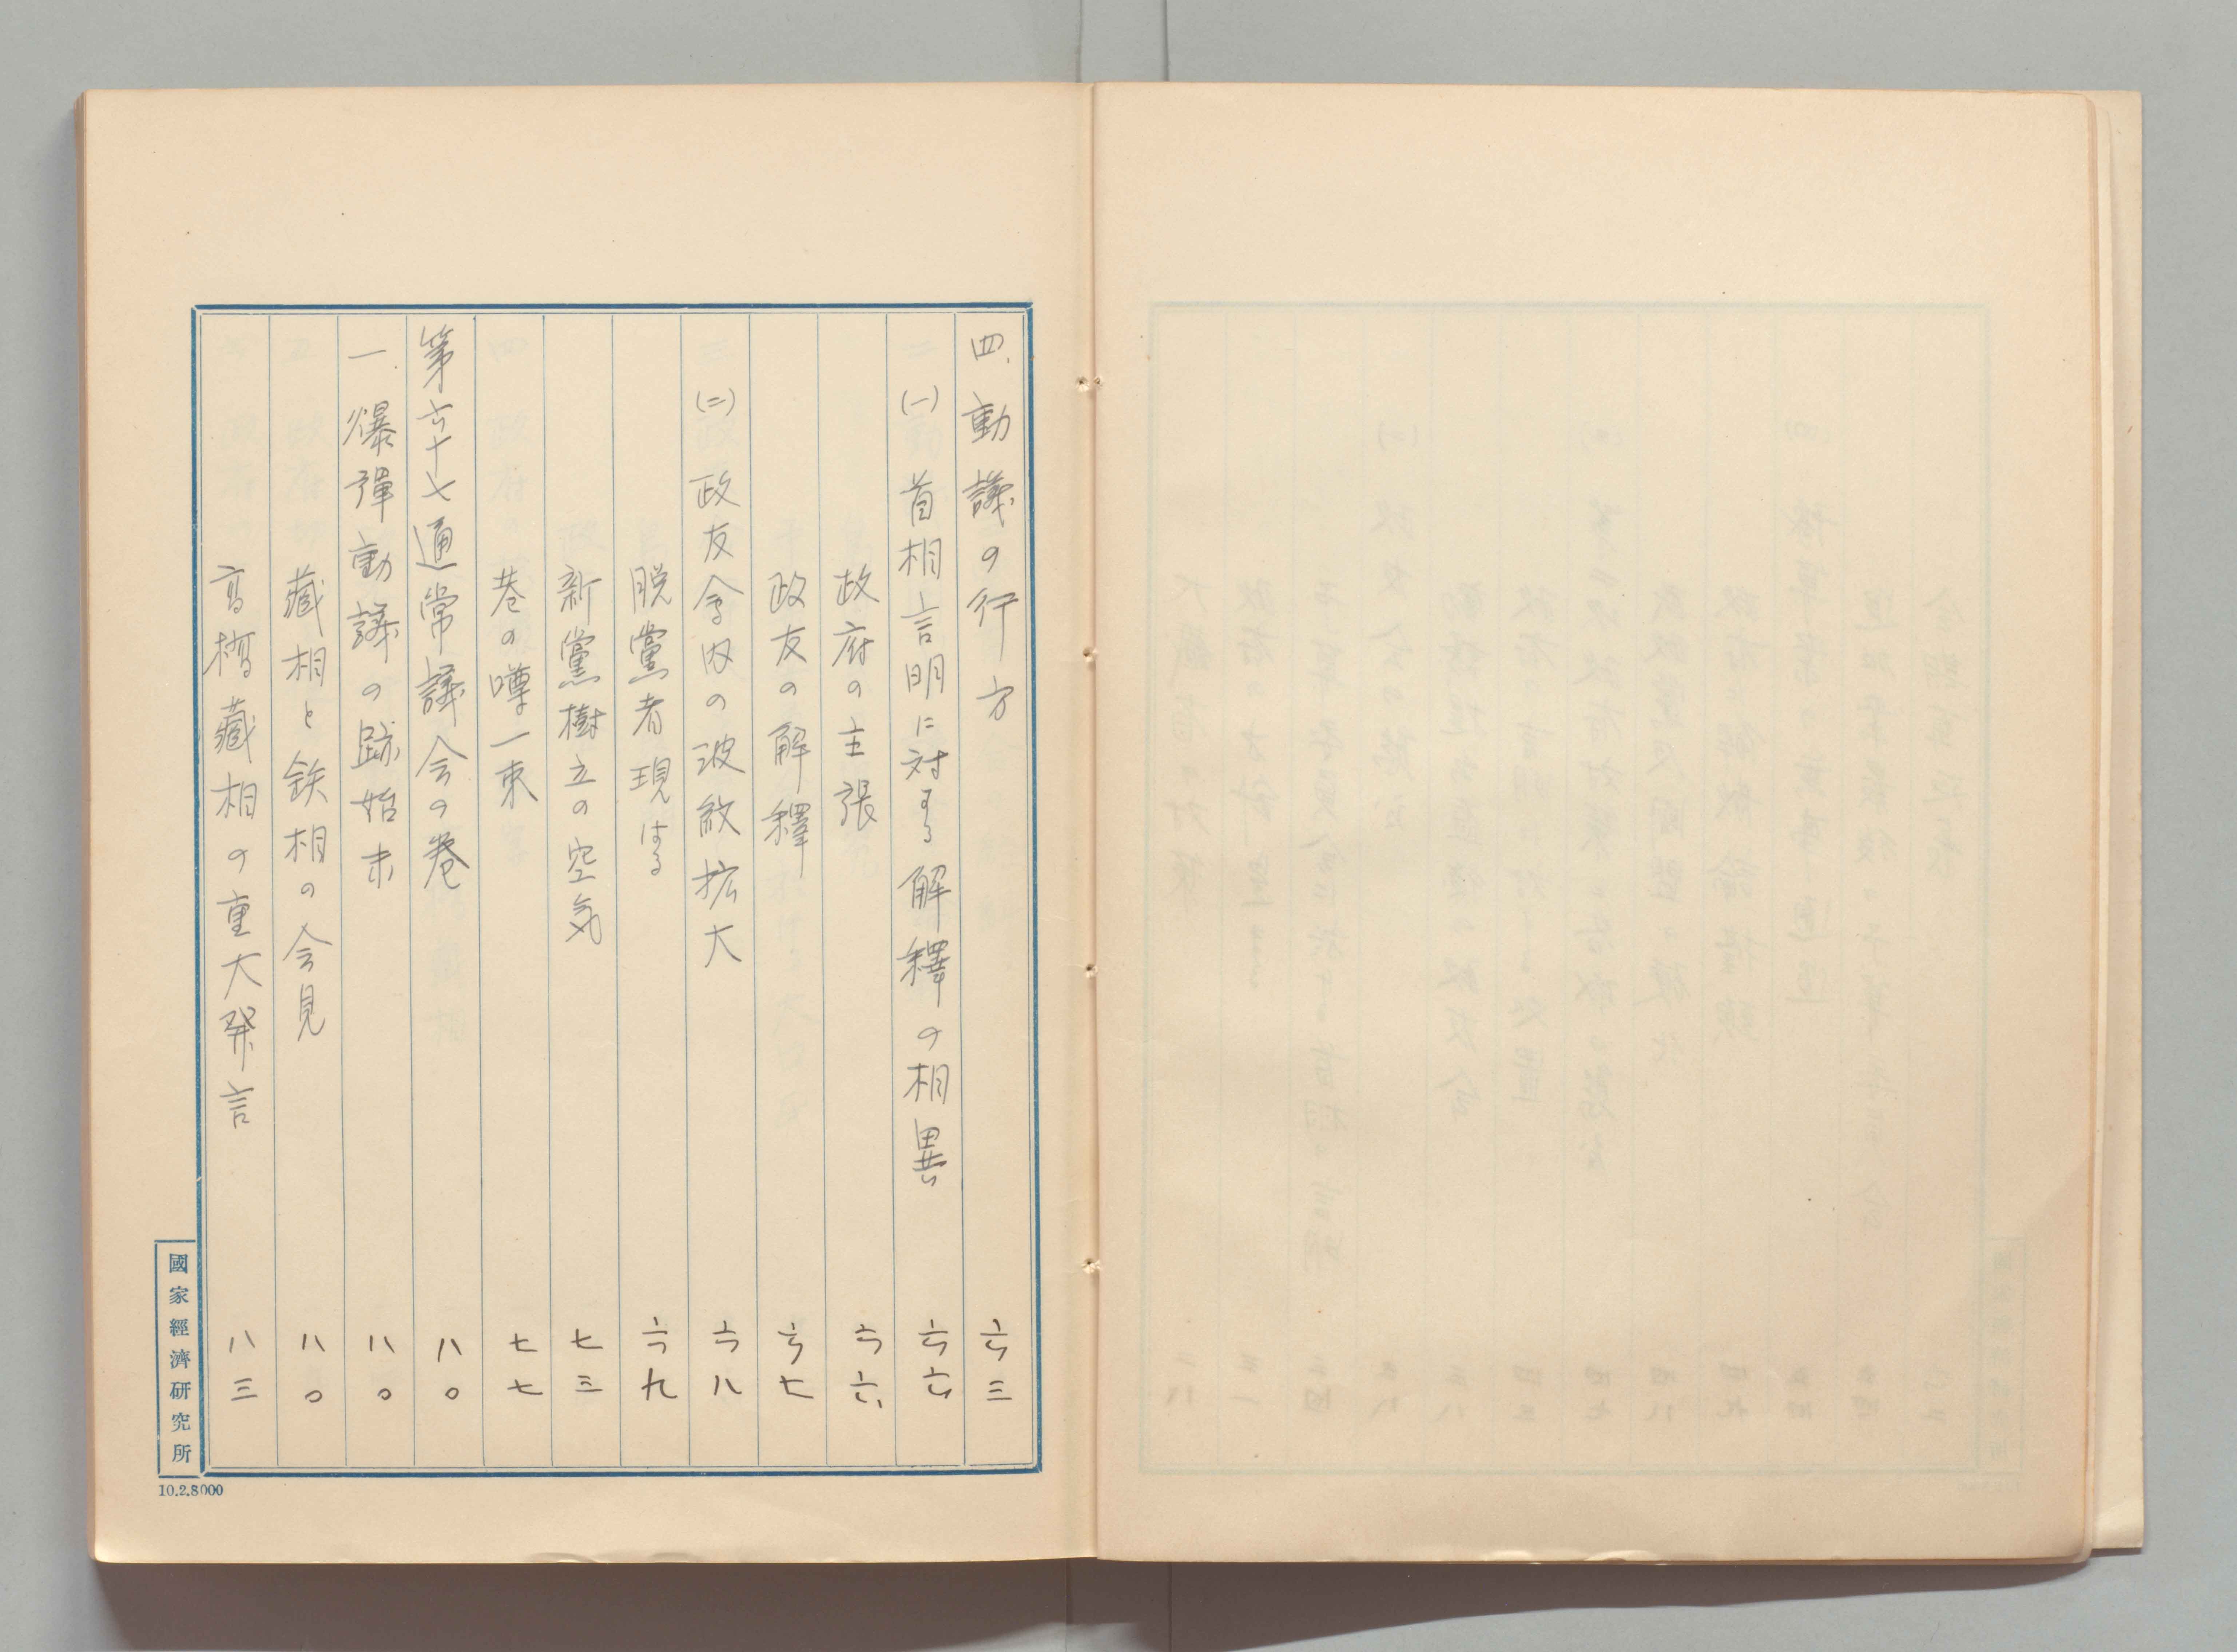 四、動議の行方 六三
(一) 首相言明に対する解釋の相異 六六
政府の主張 六六
政友の解釋 六七
(二) 政友会内の波紋拡大 六八
脱黨者現はる 六九
新黨樹立の空気 七三
巷の噂一束 七七
第六十七通常議会の巻 八〇
一、爆弾動議の跡始末 八〇
藏相と鉄相の会見 八〇
高橋藏相の重大発言 八三
國家經濟研究所
10.2.8000